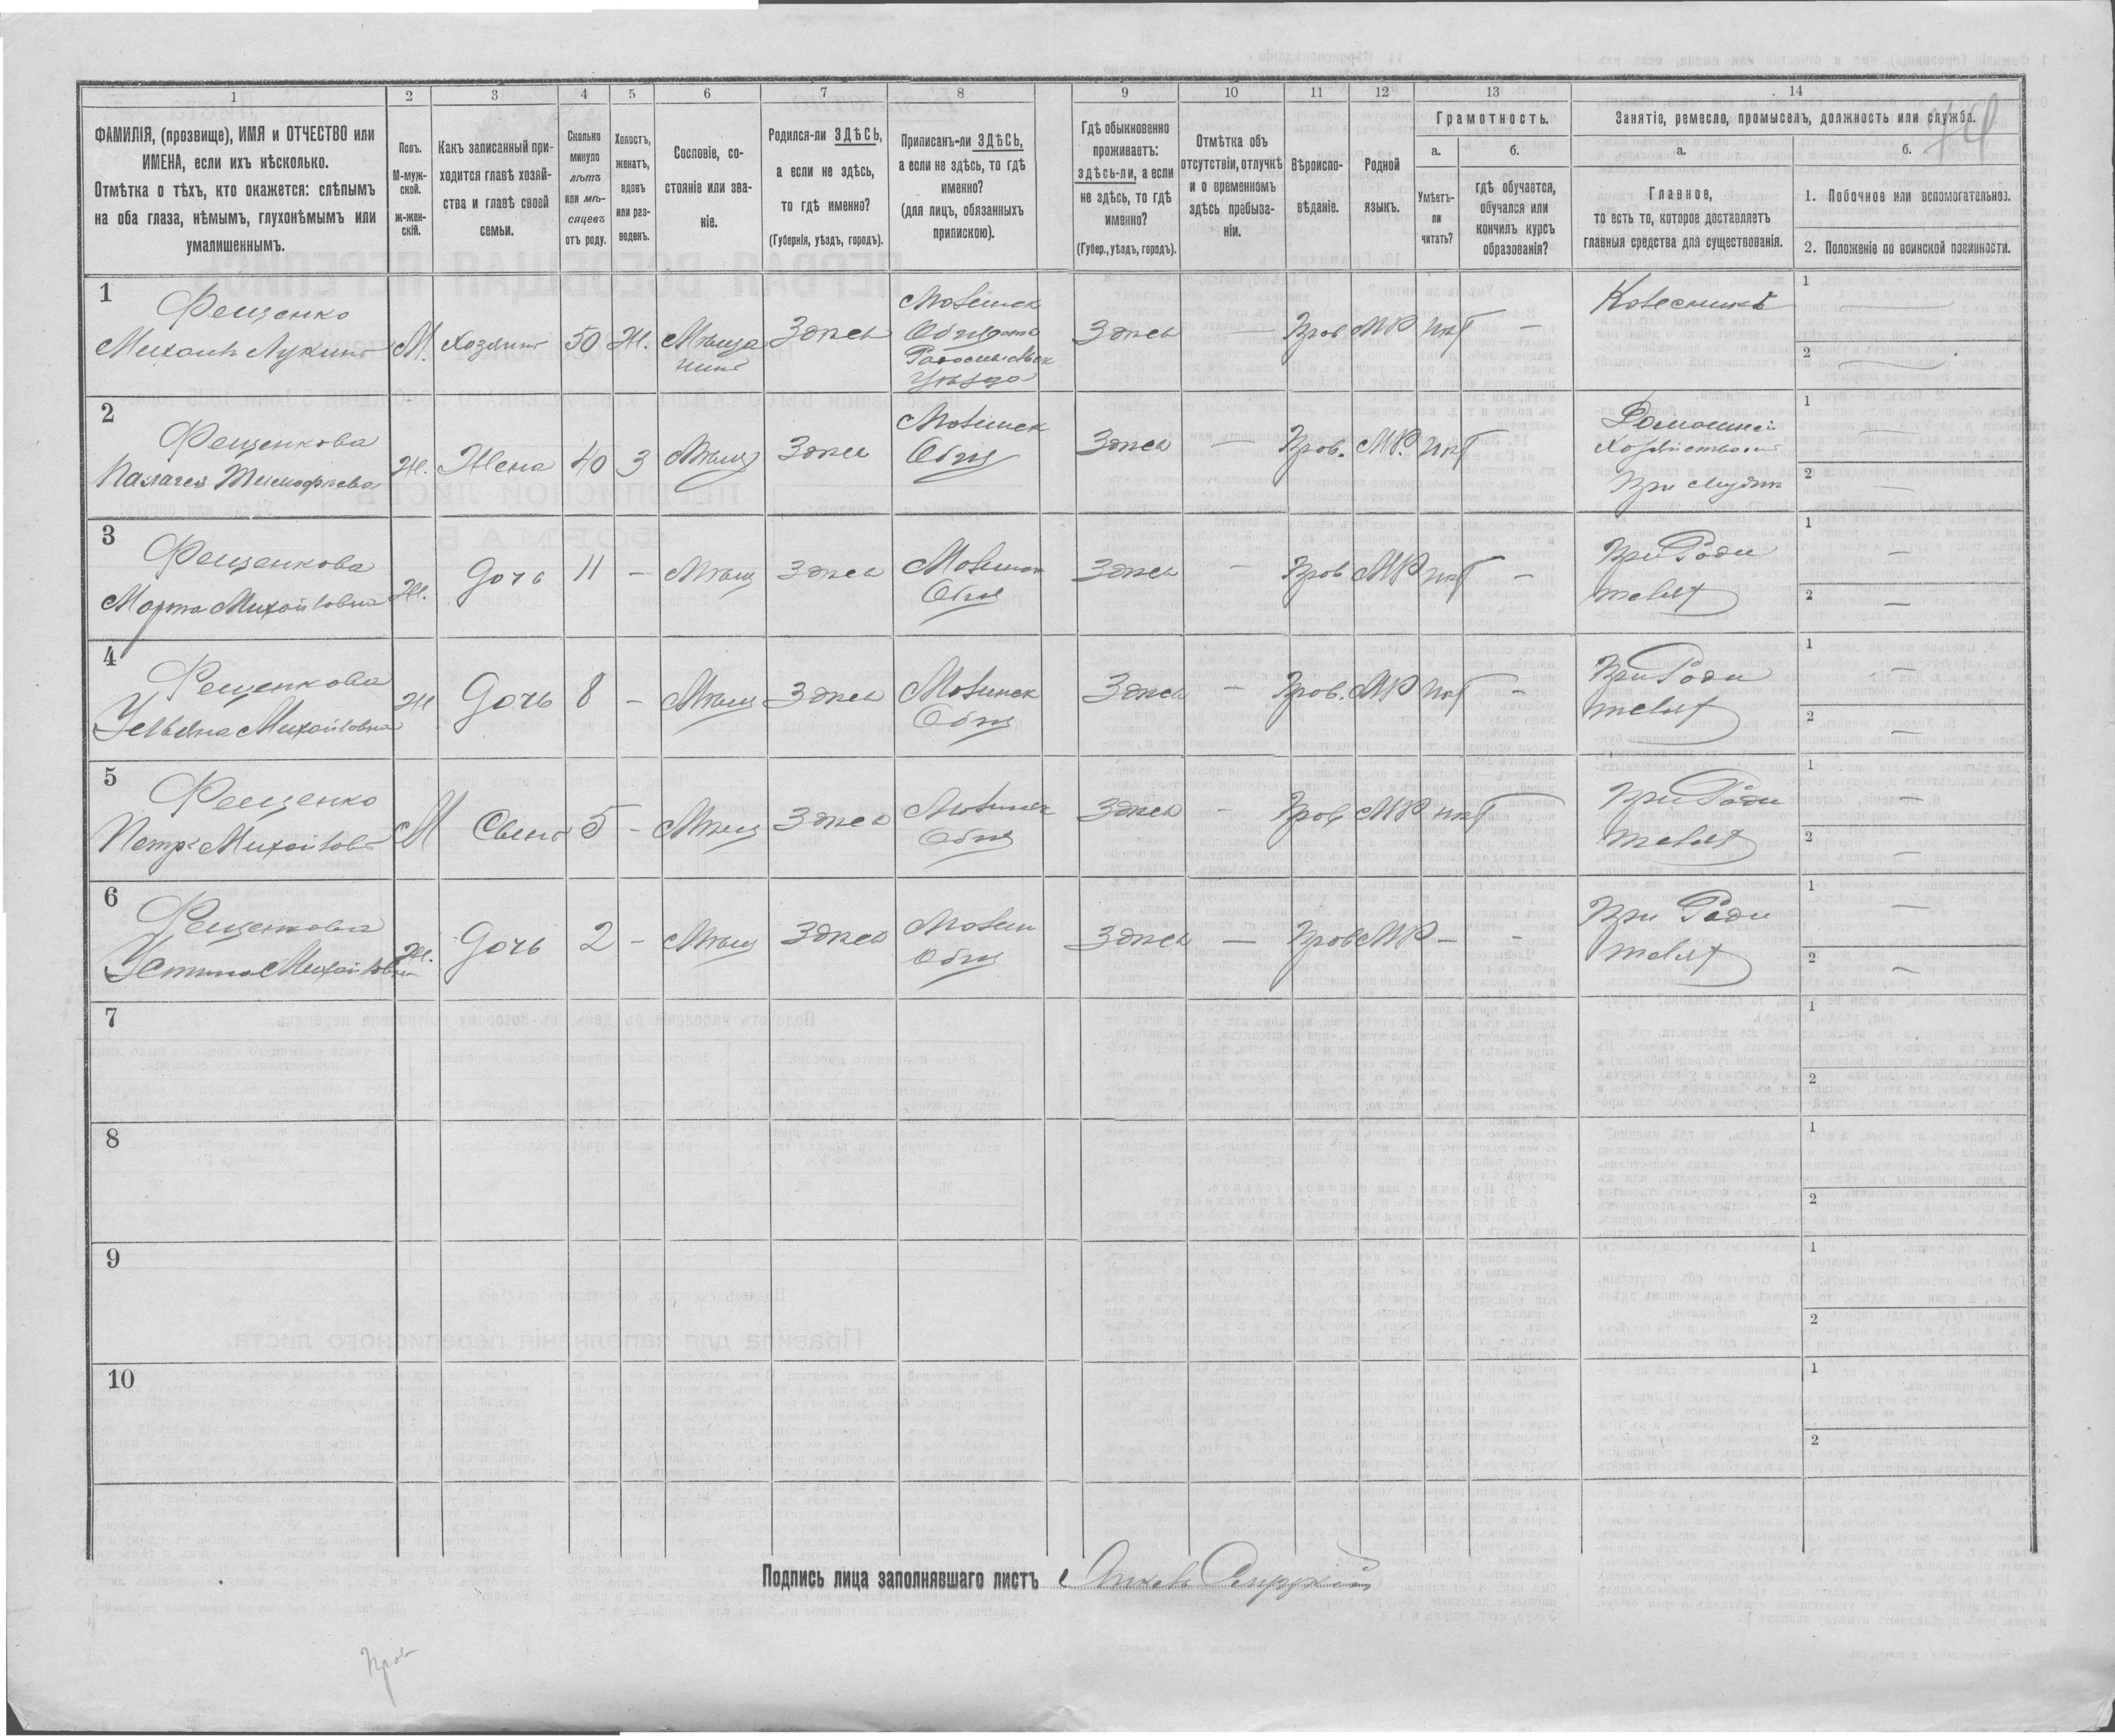 74
1
2
3
4
5
6
7
8
9
10
11
12
13
14
ФАМИЛІЯ, (прозвище), ИМЯ и ОТЧЕСТВО или
ИМЕНА, если ихъ нѣсколько.
Отмѣтка о тѣхъ, кто окажется: слѣпымъ
на оба глаза, нѣмымъ, глухонѣмымъ или
умалишеннымъ.
Полъ.
М-муж-
ской.
ж-жен-
скій.
Какъ записанный при-
ходится главѣ хозяй-
ства и главѣ своей
семьи.
Сколько
минуло
лѣтъ
или мѣ-
сяцевъ
отъ роду.
Холостъ,
женатъ,
вдовъ
или раз-
веденъ.
Сословіе, со-
стояніе или зва-
ніе.
Родился-ли ЗДѢСЬ,
а если не здѣсь,
то гдѣ именно?
(Губернія, уѣздъ, городъ).
Приписанъ-ли ЗДѢСЬ,
а если не здѣсь, то гдѣ
именно?
(для лицъ, обязанныхъ
припискою).
Гдѣ обыкновенно
проживаетъ:
здѣсь-ли, а если
не здѣсь, то гдѣ
именно?
(Губер., уѣздъ, городъ).
Отмѣтка объ
отсутствіи, отлучкѣ
и о временномъ
здѣсь пребыва-
ніи.
Вѣроиспо-
вѣданіе.
Родной
языкъ.
Грамотность.
а.
Умѣетъ-
ли
читать?
б.
гдѣ обучается,
обучался или
кончилъ курсъ
образованія?
Занятіе, ремесло, промыселъ, должность или служба.
а.
Главное,
то есть то, которое доставляетъ
главныя средства для существованія.
б.
1. Побочное или вспомогательное.
2. Положеніе по воинской повинности.
1
Фещенко
Михаилъ Лукинъ
М.
Хозяинъ
50
Ж.
Мѣща
нинъ
Здѣсь
Общества
Радомысльск
Уѣзда
Здѣсь
—
Прав
МР
нѣт
—
Колесникъ
1
—
2
—
2
Фещенкова
Палагея Тимофѣева
Ж.
Жена
40
З
Мѣщ
Здѣсь
Общ
Здѣсь
—
Прав.
МР.
нѣт
При мужѣ
1
—
2
—
3
Фещенкова
Марта Михайловна
Ж.
Дочь
11
—
Мѣщ
Здѣсь
Общ
Здѣсь
—
Прав
МР
нѣт
—
При Роди
телях
1
—
2
—
4
Фещенкова
Ульяна Михайловна
Ж
Дочь
8
—
Мѣщ
Здѣсь
Общ
Здѣсь
—
Прав.
МР
нѣт
—
При Роди
телях
1
—
2
—
5
Фещенко
Петръ Михайловъ
М
Сынъ
5
—
Мѣщ
Здѣсь
Общ
Здѣсь
—
Прав
МР
нѣт
При Роди
телях
1
—
2
—
6
Фещенкова
Устина Михайловна
Ж.
Дочь
2
—
Мѣщ
Здѣсь
Общ
Здѣсь
—
Прав
МР
—
—
При Роди
телях
1
—
2
—
7
1
2
8
1
2
9
1
2
10
1
2
Подпись лица заполнявшаго листъ